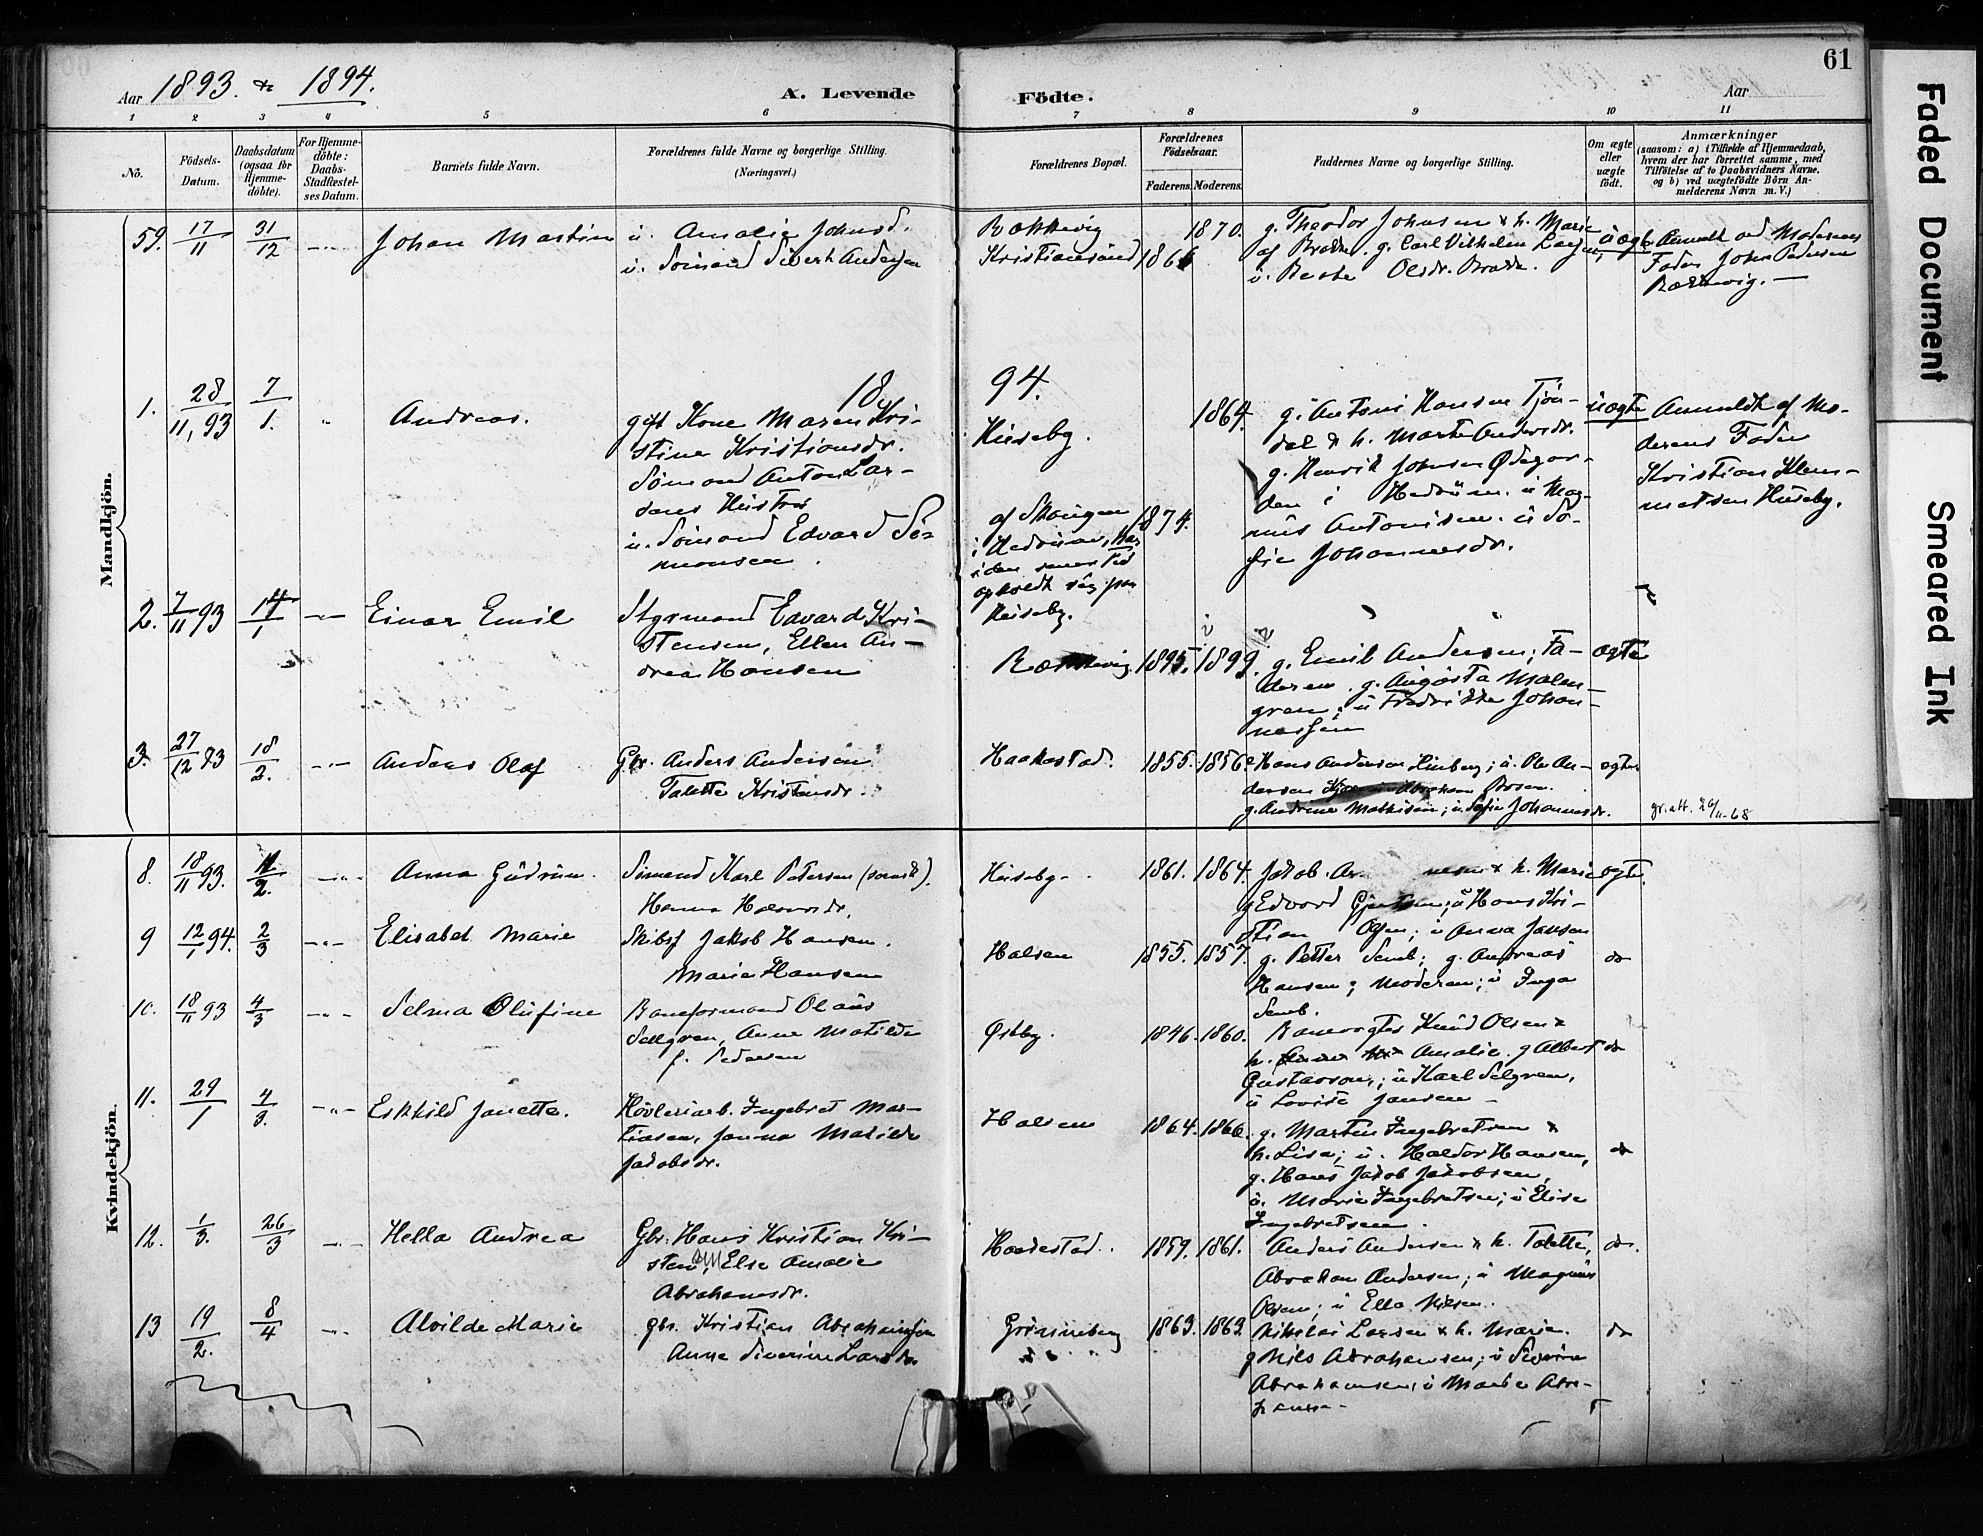 61
Aar 1893. & 1894.
A. Levende Födte.
Aar
1 2 3 4 5 6 7 8 9 10 11
No.
Födsels-
Datum.
Daabsdatum
(ogsaa för
Hjemme-
döbte).
For Hjemme-
döbte:
Daabs-
Stadfæstel-
ses Datum.
Barnets fulde Navn.
Forældrenes fulde Navne og borgerlige Stilling.
(Næringsvei.)
Forældrenes Bopæl.
Forældrenes
Födselsaar.
Faderens. Moderens.
Faddernes Navne og borgerlige Stilling.
Om ægte
eller
uægte
födt.
Anmærkninger
(saasom: a) i Tilfælde af Hjemmedaab,
hvem der har forrettet samme, med
Tilföielse af to Daabsvidners Navne,
og b) ved uægtefödte Börn An-
melderens Navn m. V.)
Mandkjön.
59. 17/11 31/12 Johan Martin
u. Amalie Johnsd.
u. Sömand Sivert Andersen
Bakkevig
Kristiansund 1866 1870.
g. Theodor Johnsen & h. Marie
af Brække. g. Carl Vilhelm Larsen
u. Beate Olsdr.
uægte
Anmeldt ved Moderens
Fader John Pedersen
Bakkevig.
1894.
1. 28/11,93 7/1. Andreas.
gift Kone Maren Kri-
stine Kristiansdr.
Sömand Anton Lar-
sens Hustru
u. Sömand Edvard Si-
monsen.
Huseby.
af Skougen
i Hedrum, har
i den senere tid
opholdt sig paa
Huseby.
1874. 1864.
g. Antoni Hansen Tjön-
dal & h. Marte Andersdr.
g. Henrik Johnsen Ødegar-
den i Hedrum. u Mag-
nus Antonisen. u So-
fie Johannesdr.
uægte
Anmeldt af Mo-
derens Fader
Kristian Klem-
metsen Huseby.
2. 7/11 93 14/1 Einar Emil
Styrmand Edvard Kri-
stensen, Ellen An-
drea Hansen
Bakkevig 1895. 1899.
g. Emil Andersen; Fa-
deren. g. Augusta Malm-
gren; u Fredrikke Johan-
nessen
ægte
3. 27/12 93 18/2. Anders Olaf
Gbr. Anders Andersen
Talette Kristensdr.
Haakestad. 1855. 1856.
Hans Andersen Himberg; u. Ole An-
dersen Abraham
g. Andrine Mathisen; u. Sofie Johannesdr.
ægte
gr.att. 20/11-68
Kvindekjön.
8. 18/11 93. 11/2. Anna Gudrun.
Sömand Karl Petersen (svensk).
Hanna
Huseby. 1861. 1864.
Jakob & h. Marie
g Edvard u Hans Kri-
stian Olsen; u Anna Jansen
ægte.
9 12/1 94. 2/3 Elisabet Marie
Skibsf Jakob Hansen.
Marie Hansen
Halsen 1855. 1857.
g. Petter Semb; g. Andreas
Hansen; Moderen; u Inga
Semb.
do
10. 18/11 93 4/3 Selma Olufine
Baneformand Olaus
Sellgren, Anne Matilde
f. Pedersen
Østby. 1846. 1860.
Banevogter Knud Olsen &
h. Amalie. g Albert
Gustavson; u Karl Selgren,
u Lovise Jansen
do
11. 29/1 4/3. Eskhild Janette.
Høvleriarb. Ingebret Mar-
tinsen, Janna Matilde
Jakobsdr.
Halsen 1864. 1866.
g. Martin Ingebretsen &
h. Lisa; u. Haldor Hansen,
g. Hans Jakob Jakobsen,
u. Marie Ingebretsen; u Elise
Ingebretsen.
do
12. 1/3. 26/3 Hella Andrea
Gbr. Hans Kristian Kri-
stens, Else Amalie
Abrahamsdr.
Haakestad. 1859. 1861.
Anders Andersen & h. Talette,
Abraham Andersen; u Magnus
Olsen; u Ella Nilsen.
do.
13 19/2. 8/4 Alvilde Marie
gbr. Kristian Abrahamsen
Anne Siverine Larsdr.
Grönneberg 1863. 1863.
Nikolai Larsen & h. Marie.
g Nils Abrahamsen; u Severin
Abrahamsen; u Marie Abra-
hamsen
do
Faded Document
Smeared Ink